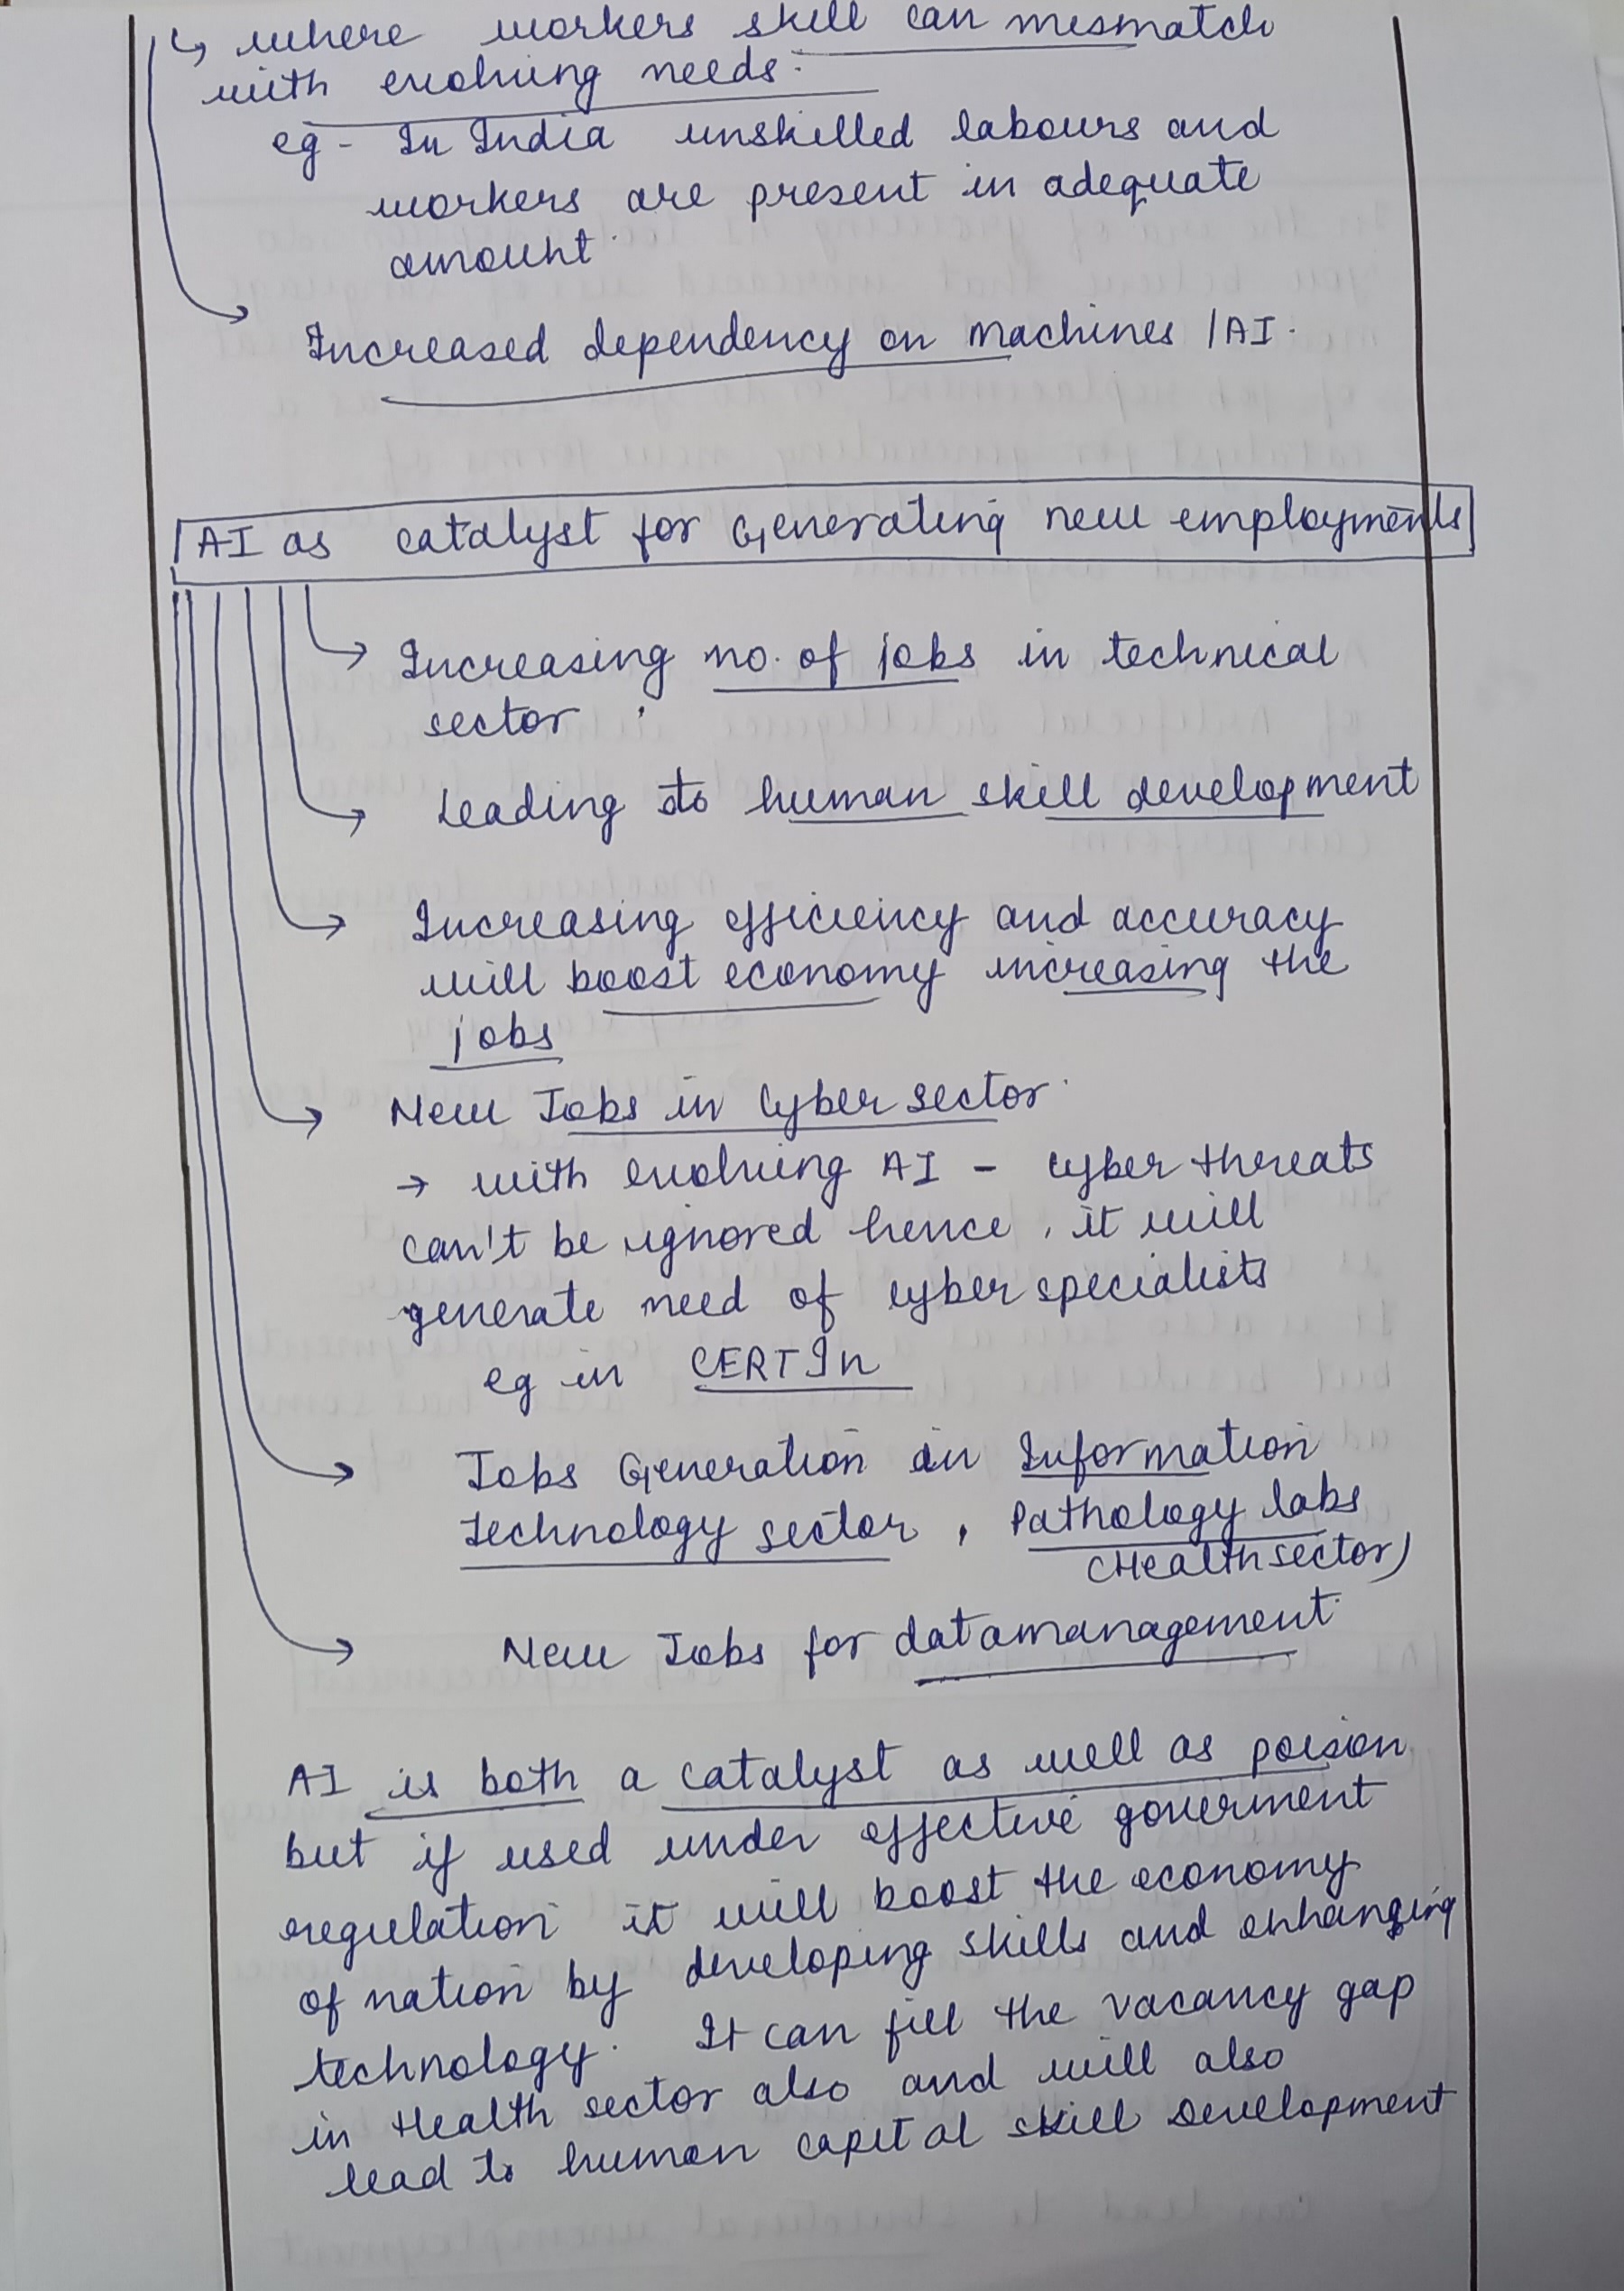 ↳ where workers skill can mismatch
with evolving needs.
eg - In India unskilled labours and
workers are present in adequate
amount.
Increased dependency on machines / AI.
AI as catalyst for Generating new employments
→ Increasing no. of jobs in technical
sector.
→ Leading to human skill development
→ Increasing efficiency and accuracy
will boost economy increasing the
jobs
→ New Jobs in Cyber sector.
→ with evolving AI - cyber threats
can't be ignored hence, it will
generate need of cyber specialists
eg in CERT In
→ Jobs Generation in Information
Technology sector, Pathology labs
(Health sector)
→ New Jobs for data management.
AI is both a catalyst as well as poision
but if used under effective goverment
regulation it will boost the economy
of nation by developing skills and enhanging
technology. It can fill the vacancy gap
in Health sector also and will also
lead to human capital skill Development